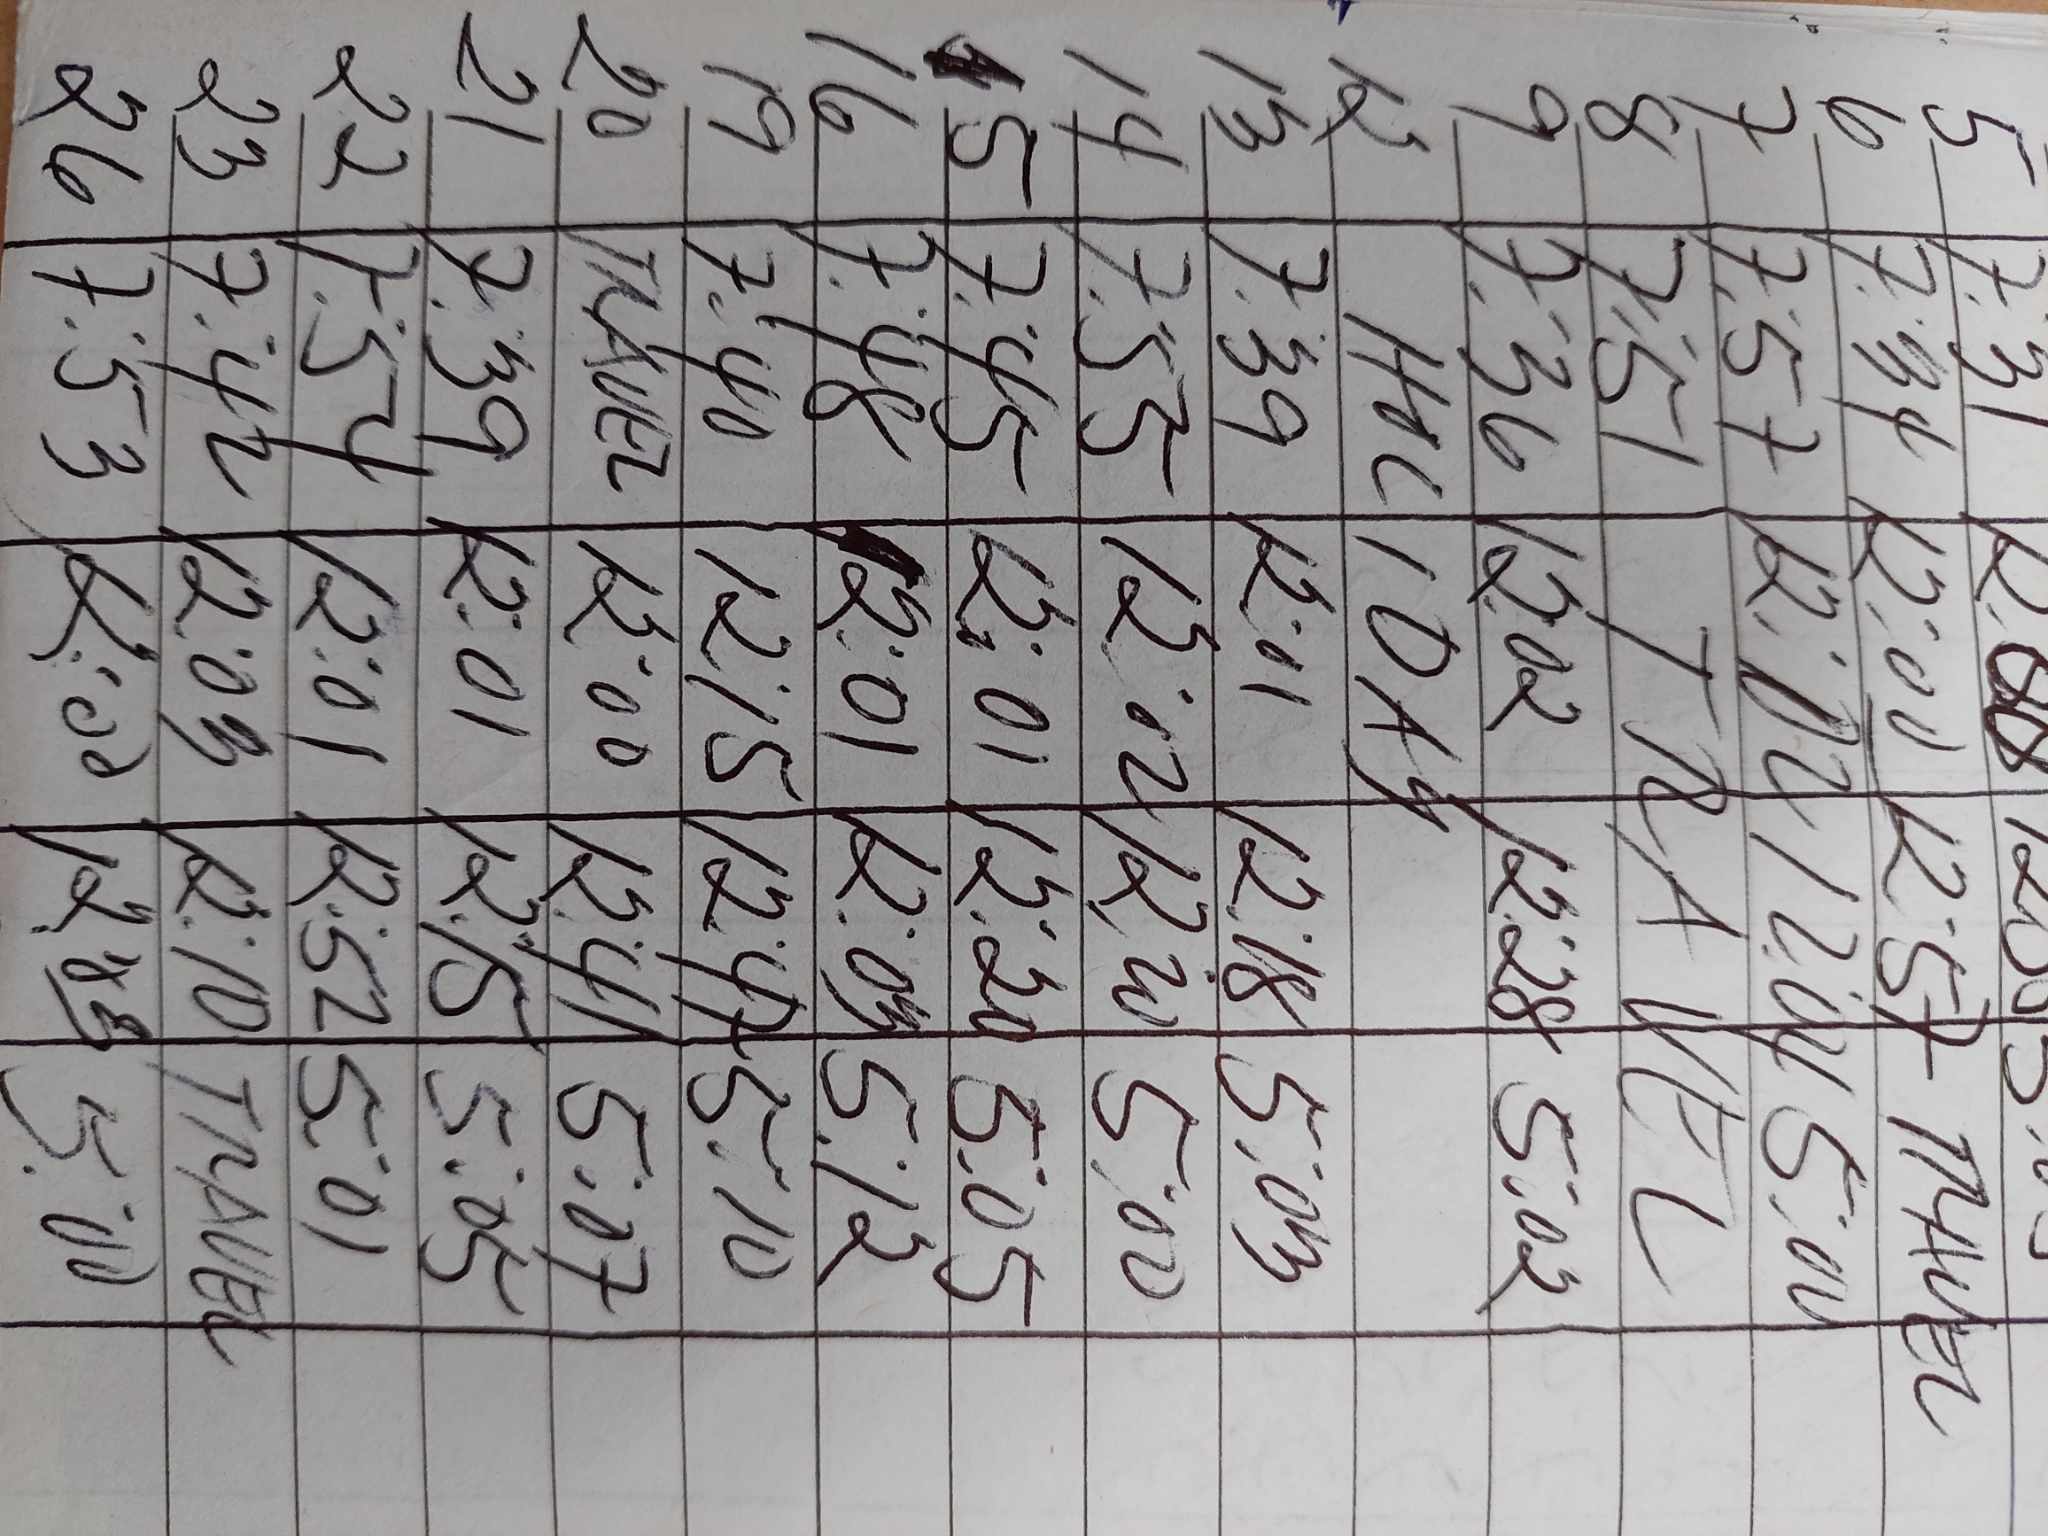 5 7:31 12:00 12:05
6 7:34 12:00 12:57 TRAVEL
7 7:57 12:02 12:04 5:00
8 7:51 TRAVEL
9 7:36 12:02 12:28 5:02
12 HOLIDAY
13 7:39 12:01 12:18 5:03
14 7:55 12:02 12:20 5:00
15 7:45 12:01 12:20 5:05
16 7:48 12:01 12:03 5:12
19 7:40 12:15 12:47 5:10
20 TRAVEL 12:00 12:41 5:07
21 7:39 12:01 12:15 5:05
22 7:54 12:01 12:52 5:01
23 7:42 12:03 12:10 TRAVEL
26 7:53 12:00 12:03 5:00